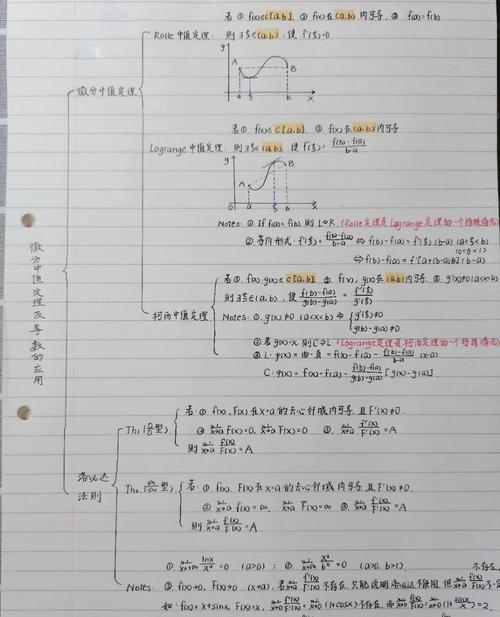 微分中值定理及导数的应用
微分中值定理
Rolle 中值定理:
若 ① f(x)∈C[a,b] ② f(x)在(a,b)内可导 ③ f(a)=f(b)
则 ∃ξ∈(a,b), 使 f'(ξ)=0
y
A
B
a
ξ
b
x
Lagrange 中值定理:
若 ①. f(x)∈C[a,b]. ②. f(x)在(a,b)内可导
则 ∃ξ∈(a,b), 使 f'(ξ)= \frac{f(b)-f(a)}{b-a}
y
A
B
0
a
ξ
b
x
Notes: ①. If f(a)=f(b), 则 L⇔R. (Rolle定理是Lagrange定理的一个特殊情况)
②. 等价形式: f'(ξ)=\frac{f(b)-f(a)}{b-a} ⇔ f(b)-f(a)=f'(ξ)(b-a) (a<ξ<b)
(0<θ<1)
⇔ f(b)-f(a)=f'[a+(b-a)θ](b-a)
柯西中值定理
若 ①. f(x).g(x)∈C[a,b] ②. f(x), g(x)在(a,b)内可导. ③. g'(x)≠0 (a<x<b)
则 ∃ξ∈(a,b), 使 \frac{f(b)-f(a)}{g(b)-g(a)} = \frac{f'(ξ)}{g'(ξ)}
Notes: ①. g'(x)≠0 (a<x<b) ⇒ { g'(ξ)≠0
g(b)-g(a)≠0.
②若 g(x)=x, 则 C⇔L (Lagrange定理是柯西定理的一个特殊情况)
③ L: φ(x)=曲-直= f(x)-f(a)-\frac{f(b)-f(a)}{b-a}(x-a)
C: φ(x)=f(x)-f(a)-\frac{f(b)-f(a)}{g(b)-g(a)}[g(x)-g(a)].
洛必达法则
Th₁ (\frac{0}{0}型)
若: ① f(x), F(x)在x=a的去心邻域内可导, 且F'(x)≠0.
② \lim_{x→a} f(x)=0, \lim_{x→a} F(x)=0 ③. \lim_{x→a} \frac{f'(x)}{F'(x)}=A
则 \lim_{x→a} \frac{f(x)}{F(x)}=A.
Th₂ (\frac{∞}{∞}型)
若: ① f(x), F(x)在x=a的去心邻域内可导 且F'(x)≠0.
② \lim_{x→a} f(x)=∞, \lim_{x→a} F(x)=∞ ③ \lim_{x→a} \frac{f'(x)}{F'(x)}=A
则 \lim_{x→a} \frac{f(x)}{F(x)}=A
Notes:
①. \lim_{x→+∞} \frac{lnx}{x^a}=0 (a>0) ; ②. \lim_{x→+∞} \frac{x^a}{b^x}=0 (a>0, b>1). 不存在.
③ f(x)→0, F(x)→0. (x→a), 若 \lim_{x→a} \frac{f'(x)}{F'(x)} 不存在, 只能说明洛必达不能用, 但 \lim_{x→a} \frac{f(x)}{F(x)} 不一定
如: f(x)=x+sinx, F(x)=x, \lim_{x→0} \frac{f'(x)}{F'(x)}=\lim_{x→0}(1+cosx)不存在, 而 \lim_{x→0} \frac{f(x)}{F(x)}=\lim_{x→0}(1+\frac{sinx}{x})=2.